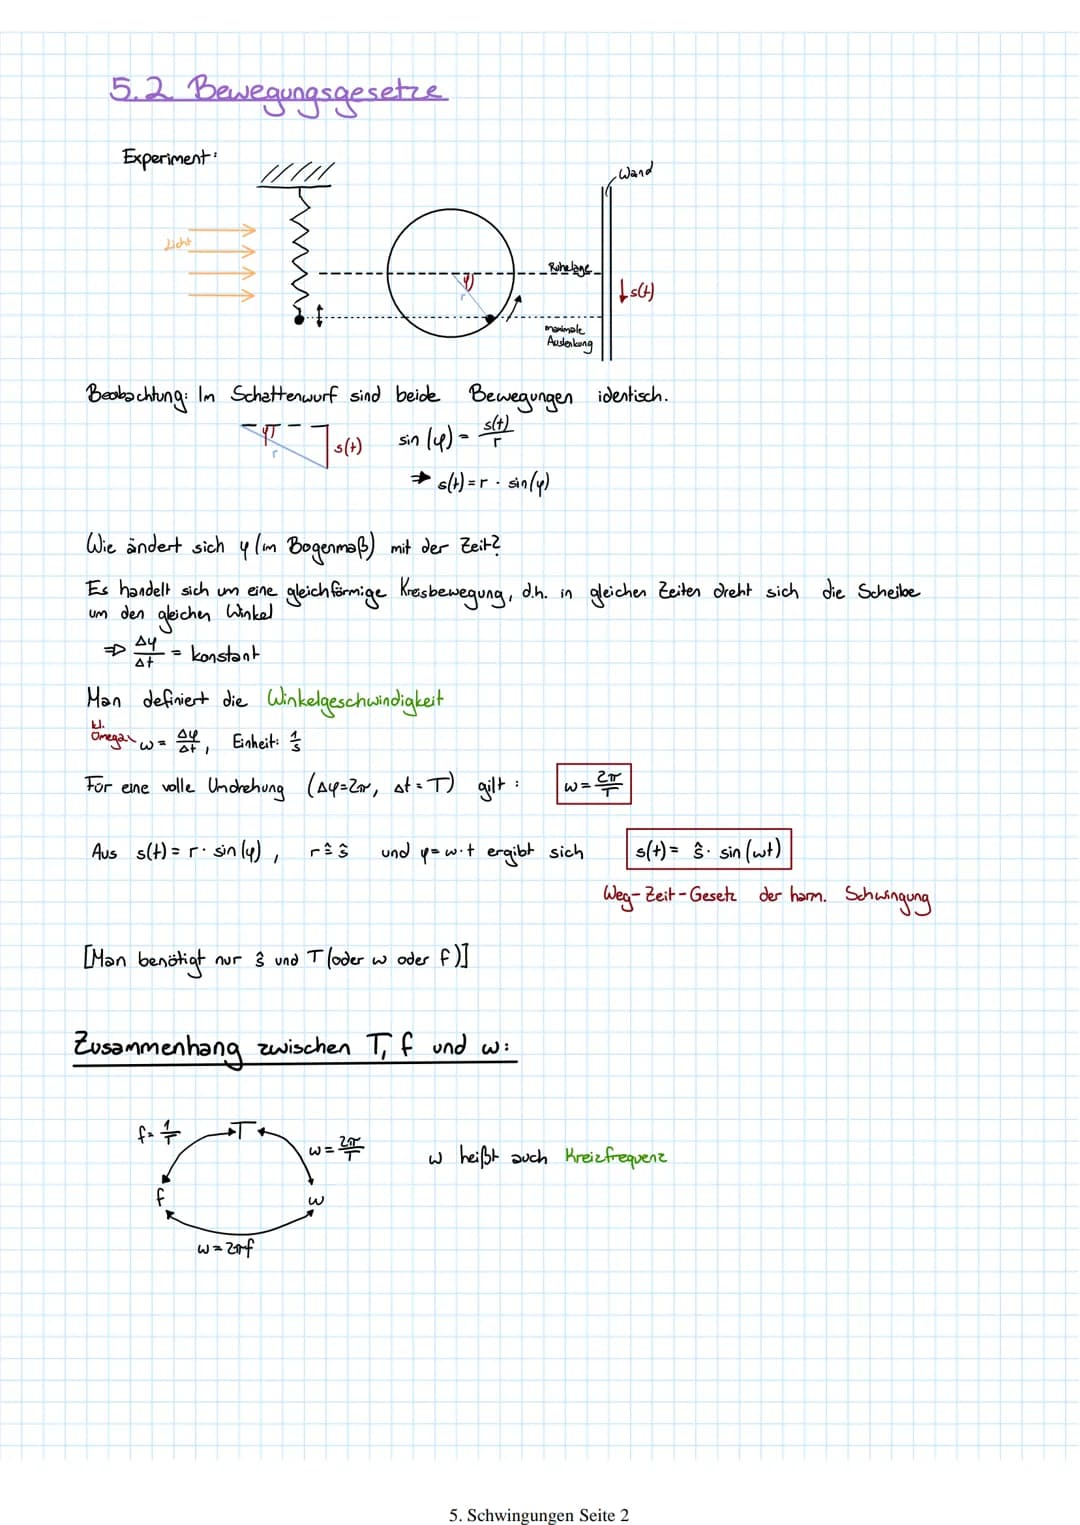 5.2 Bewegungsgesetze
Experiment:
Wand
Licht
φ
r
Ruhelage
↓s(t)
maximale
Auslenkung
Beobachtung: Im Schattenwurf sind beide Bewegungen identisch.
φ r s(t) sin(φ) = s(t)/r
⇒ s(t) = r · sin(φ)
Wie ändert sich φ (im Bogenmaß) mit der Zeit?
Es handelt sich um eine gleichförmige Kreisbewegung, d.h. in gleichen Zeiten dreht sich die Scheibe
um den gleichen Winkel
⇒ Δφ/Δt = konstant
Man definiert die Winkelgeschwindigkeit
kl.
Omega ω = Δφ/Δt, Einheit: 1/s
Für eine volle Umdrehung (Δφ=2π, Δt=T) gilt: ω = 2π/T
Aus s(t) = r · sin(φ), r ≙ ŝ und φ = ω·t ergibt sich s(t) = ŝ · sin(ωt)
Weg-Zeit-Gesetz der harm. Schwingung
[Man benötigt nur ŝ und T (oder ω oder f)]
Zusammenhang zwischen T, f und ω:
f = 1/T T ω = 2π/T
ω heißt auch Kreizfrequenz
f ω
ω = 2πf
5. Schwingungen Seite 2